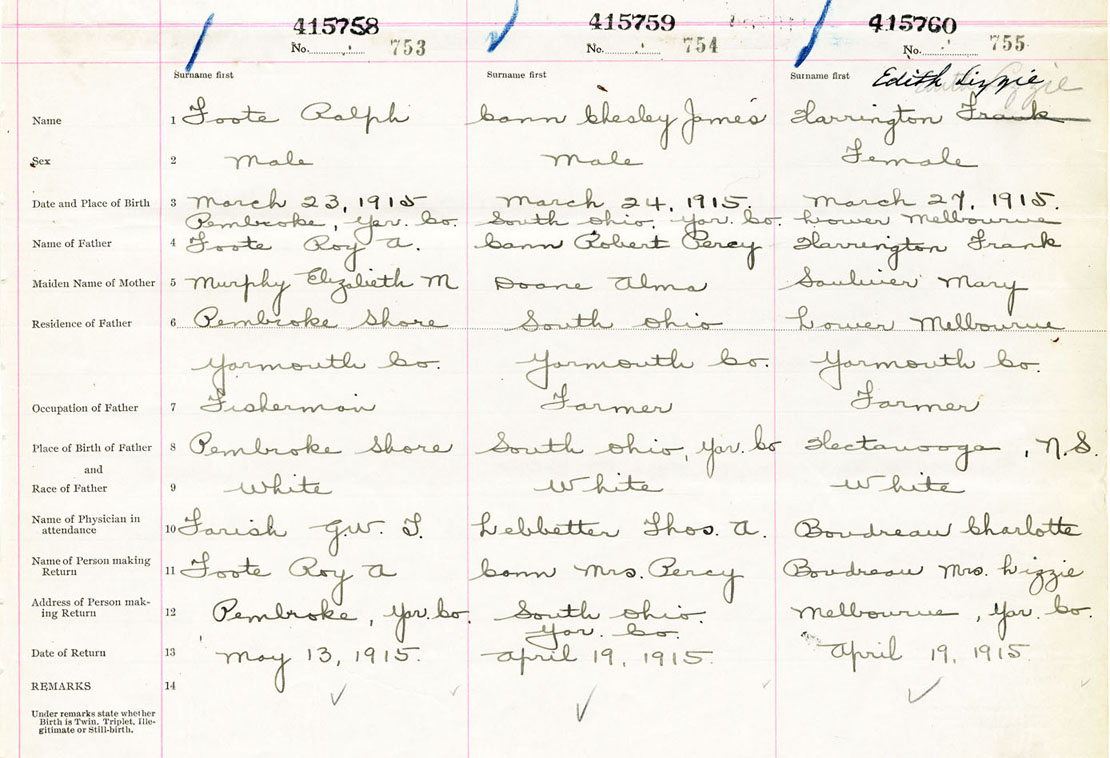 415758 415759 415760
No. 753 No. 754 No. 755
Surname first Surname first Surname first Edith Lizzie
Name 1 Foote Ralph Cann Chesley James Harrington Frank
Sex 2 Male Male Female
Date and Place of Birth 3 March 23, 1915 March 24, 1915. March 27, 1915.
Pembroke, Yar. Co. South Ohio, Yar. Co. Lower Melbourne
Name of Father 4 Foote Roy A. Cann Robert Percy Harrington Frank
Maiden Name of Mother 5 Murphy Elizabeth M Doane Alma Saulnier Mary
Residence of Father 6 Pembroke Shore South Ohio Lower Melbourne
Yarmouth Co. Yarmouth Co. Yarmouth Co.
Occupation of Father 7 Fisherman Farmer Farmer
Place of Birth of Father 8 Pembroke Shore South Ohio, Yar. Co Hectanooga, N.S.
and
Race of Father 9 White White White
Name of Physician in
attendance 10 Farish G.W. T. Lebbetter Thos. A. Boudreau Charlotte
Name of Person making
Return 11 Foote Roy A Cann Mrs. Percy Boudreau Mrs. Lizzie
Address of Person mak-
ing Return 12 Pembroke, Yar. Co. South Ohio. Melbourne, Yar. Co.
Yar. Co.
Date of Return 13 May 13, 1915. April 19, 1915. April 19, 1915.
REMARKS 14
Under remarks state whether
Birth is Twin, Triplet, Ille-
gitimate or Still-birth.